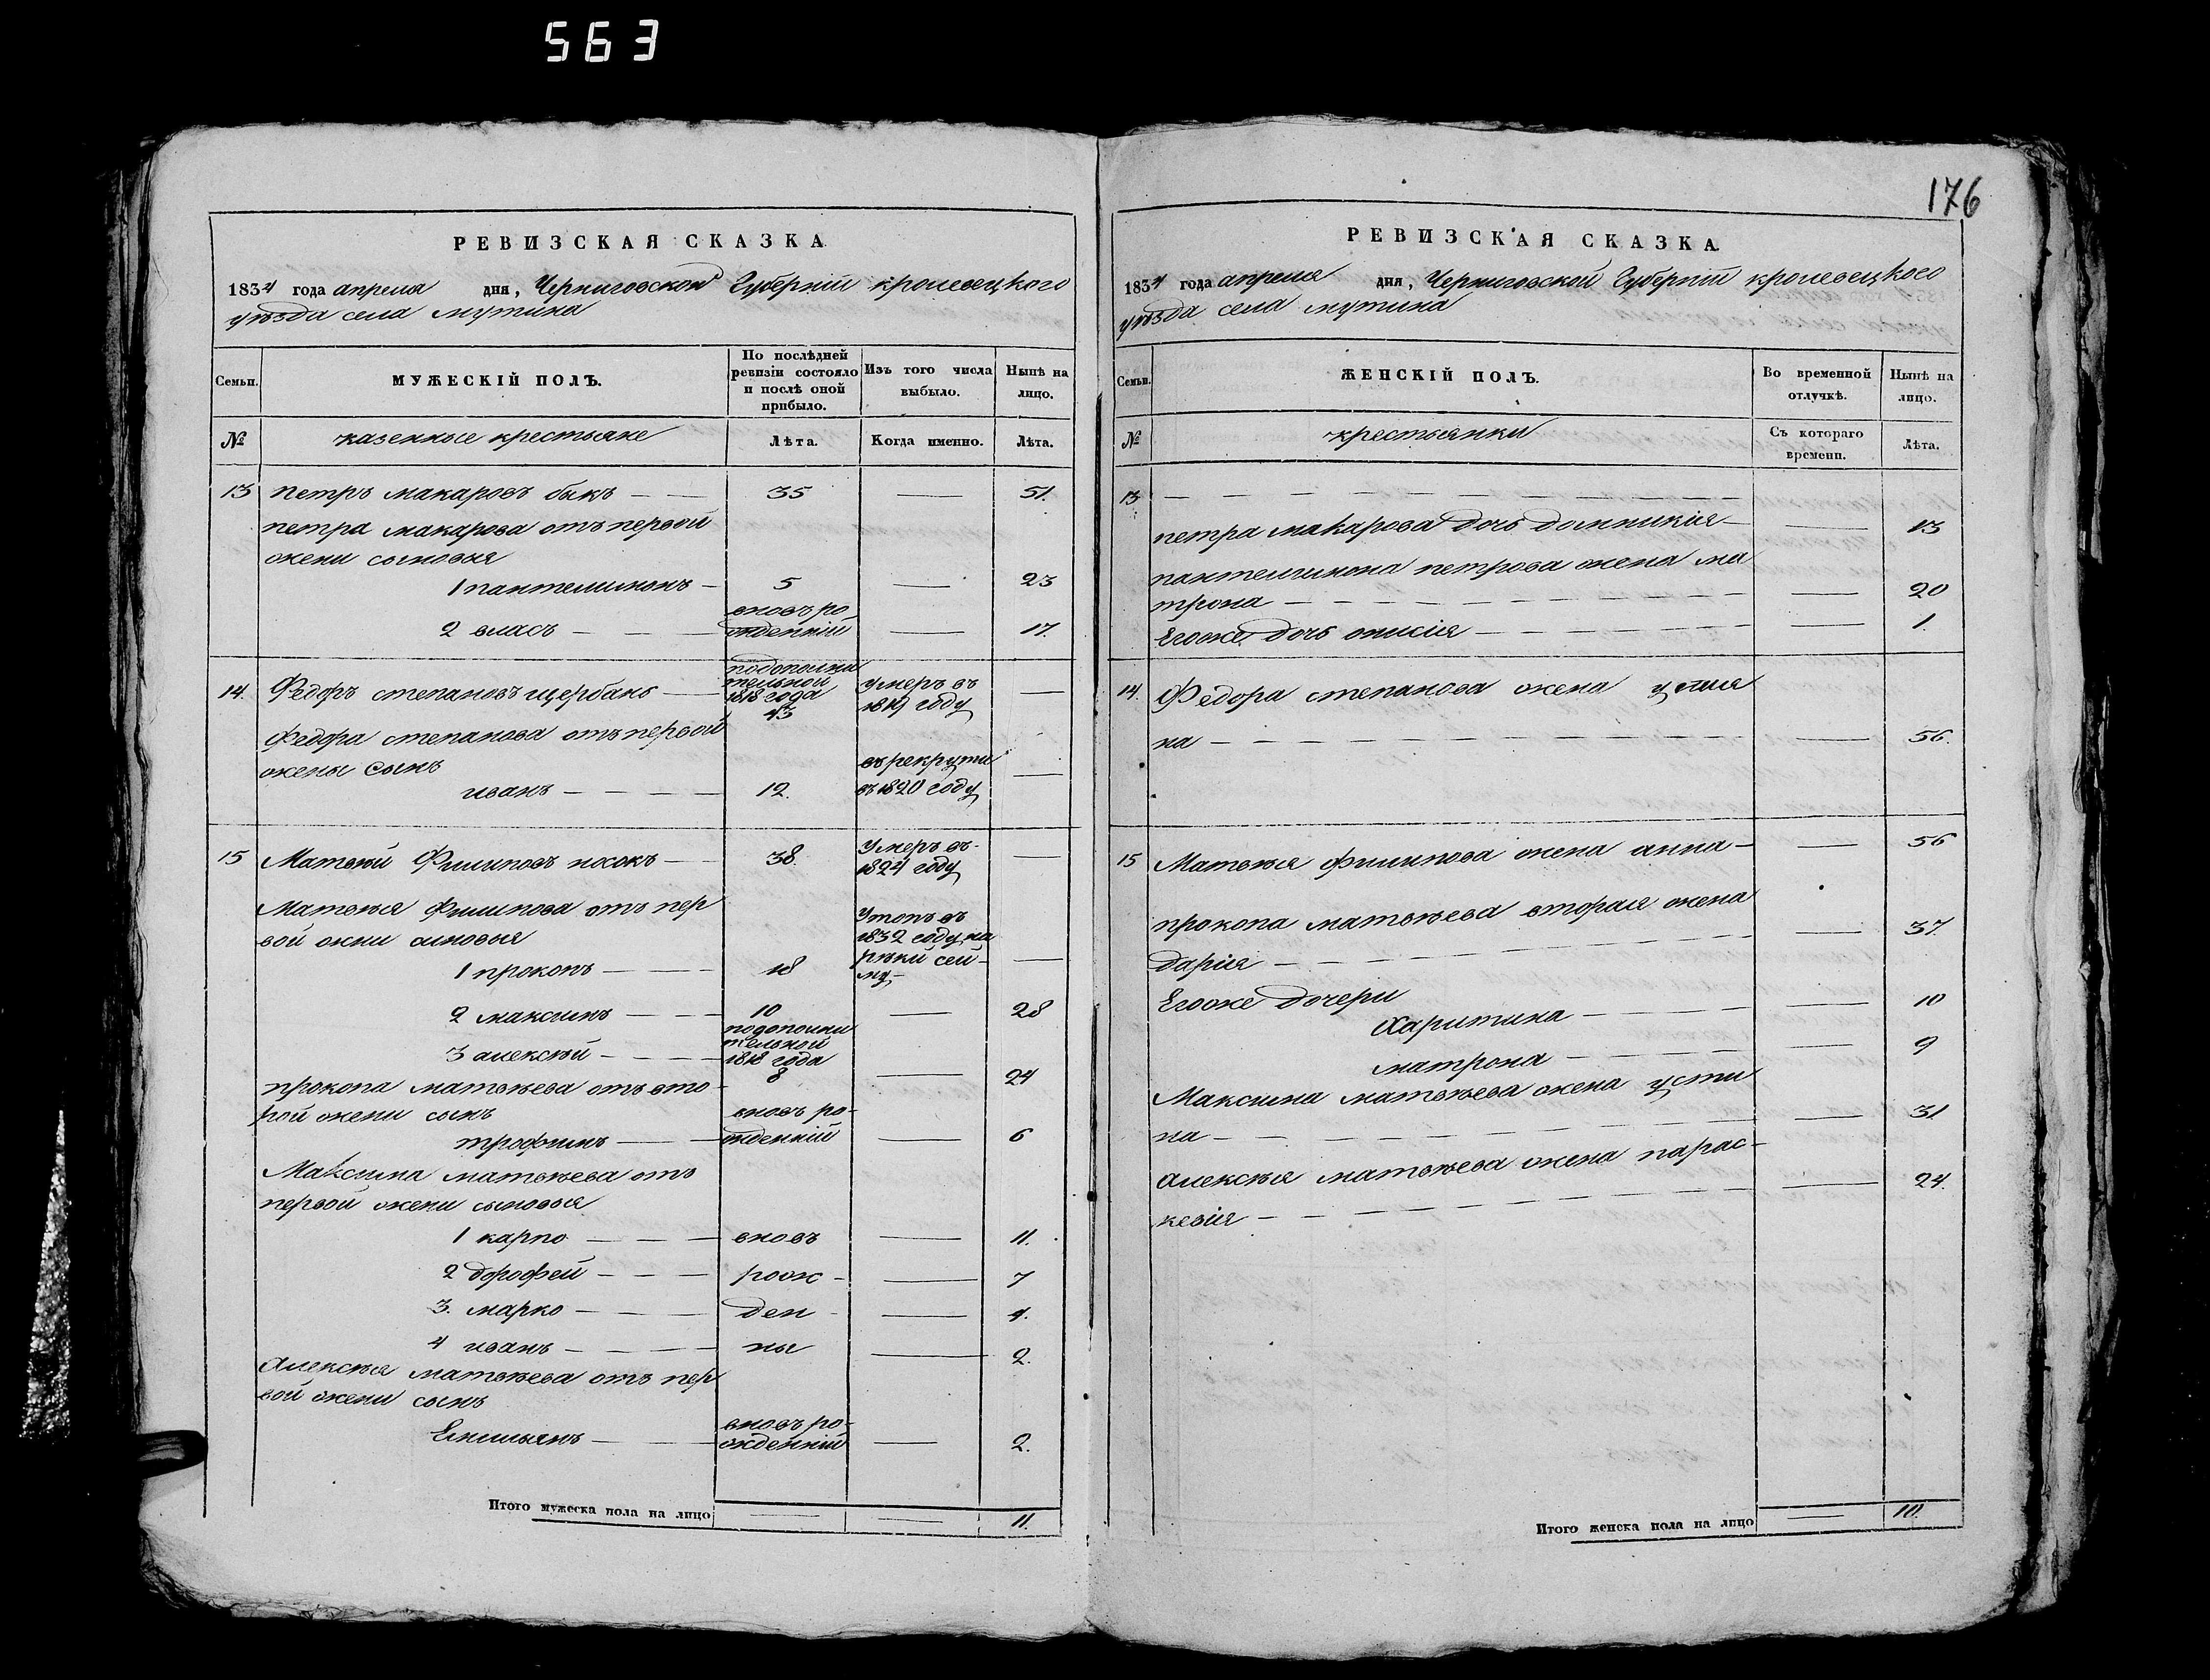 563
РЕВИЗСКАЯ СКАЗКА
1834 года апреля дня, Черниговской Губерніи кролевецкого
уѣзда села мутина
Семьи.
МУЖЕСКІЙ ПОЛЪ.
По послѣдней ревизіи состояло и послѣ оной прибыло.
Изъ того числа выбыло.
Нынѣ на лицо.
№ казенные крестьяне Лѣта. Когда именно. Лѣта.
13 петръ макаровъ быкъ — — 35 — 51.
петра макарова отъ первой
жени сыновья
1 пантелимонъ — 5 — 23
вновъ ро
2 власъ — — — жденній — 17.
подополни
тельной
14. Федоръ степановъ щербань — 1818 года умеръ въ —
43 1819 году
Федора степанова отъ первой
жены сынъ въ рекрути
иванъ — — — — 12. въ 1820 году —
15 Матвѣй Филиповъ носокъ — 38. умеръ въ —
1824 году
Матвѣя Филипова отъ пер
вой жени сыновья
утопъ въ
1832 году на
1 прокопъ — — — 18 рѣки сей- —
му-
2 максимъ — — — 10 — 28
подополни
тельной
3 алексѣй — — — 1818 года
8 — 24
прокопа матвѣева отъ вто-
рой жени сынъ вновъ ро-
трофимъ — — жденній — 6
Максима матвѣева отъ
первой жени сыновья
1 карпо — — — вновъ — 11.
2 дорофей — — — рож- — 7
3. марко — — — ден- — 4.
4 иванъ — — — ны — 2.
Алексѣя матвѣева отъ пер
вой жени сынъ
вновъ ро-
Емильянъ — — жденній — 2.
Итого мужеска пола на лицо — — 11.
176
РЕВИЗСКАЯ СКАЗКА
1834 года апреля дня, Черниговской Губерніи кролевецкого
уѣзда села мутина
Семьи.
ЖЕНСКІЙ ПОЛЪ.
Во временной отлучкѣ.
Нынѣ на лицо.
№ крестьянки Съ котораго времени. Лѣта.
13 — — — — — — — — —
петра макарова дочь домникия — — 13
пантелимона петрова жена ма
трона — — — — — — — — 20
Егоже дочь онисія — — — — — 1.
14. Федора степанова жена улия
на — — — — — — — — 56.
15 Матвѣя филипова жена анна — — 56
прокопа матвѣева вторая жена
дарія — — — — — — — 37.
Егоже дочери
Харитина — — — — 10
матрона — — — — 9
Максима матвѣева жена усти
на — — — — — — — — 31
алексѣя матвѣева жена парас-
кевія — — — — — — — 24.
Итого женска пола на лицо — 10.